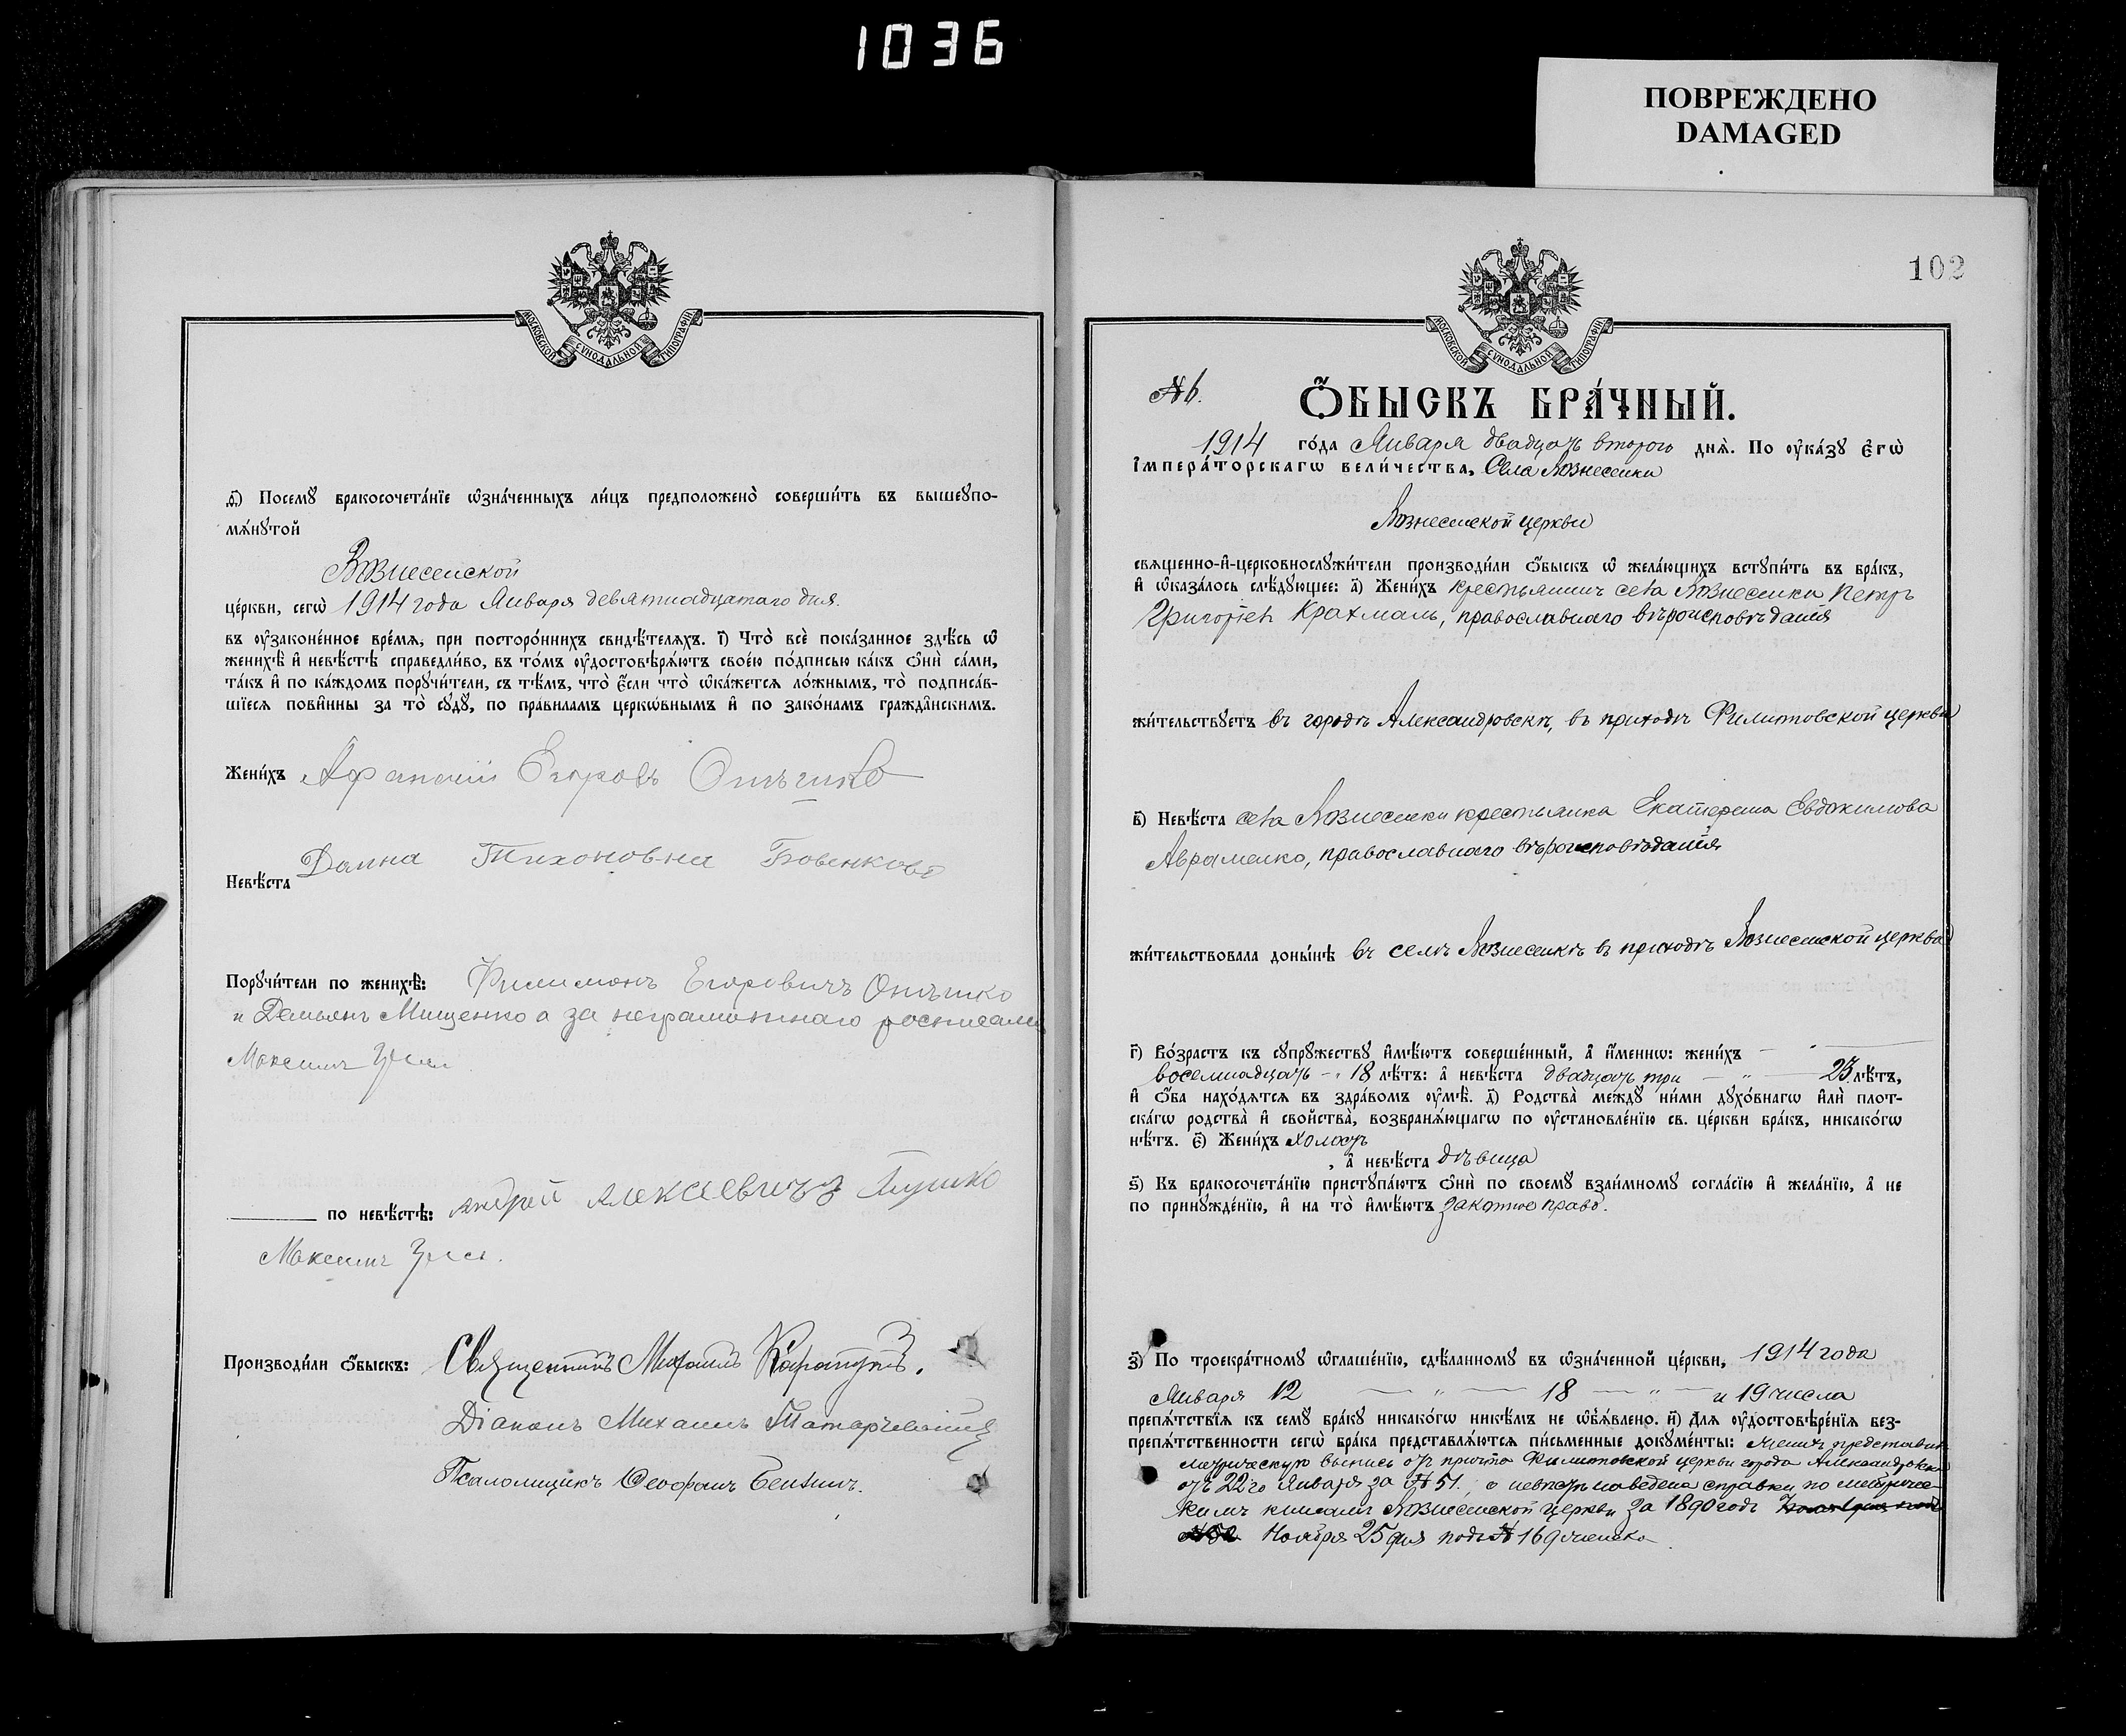 1036
ПОВРЕЖДЕНО
DAMAGED
МОСКОВСКОЙ СѴНОДАЛЬНОЙ ТИПОГРАФІИ
ѳ҃) Посемꙋ бракосочета́нїе ѡ҆зна́ченныхъ ли́цъ предположено̀ соверши́ть въ вышеꙋпо-
мѧ́нꙋтой
Вознесенской
це́ркви, сегѡ̀ 1914 года Января девятнадцатаго дня.
въ ᲂу҆законе́нное вре́мѧ, при посторо́ннихъ свидѣ́телѧхъ. і҃) Что̀ всѐ пока́занное здѣ́сь ѡ҆
женихѣ̀ и҆ невѣ́стѣ справедли́во, въ то́мъ ᲂу҆достовѣрѧ́ютъ свое́ю по́дписью ка́къ ѻ҆нѝ са́ми,
та́къ и҆ по ка́ждомъ порꙋчи́тели, съ тѣ́мъ, что̀ є҆́сли что̀ ѡ҆ка́жетсѧ ло́жнымъ, то̀ подписа́в-
шїесѧ пови́нны за то̀ сꙋдꙋ̀, по пра́виламъ церко́внымъ и҆ по зако́намъ гражда́нскимъ.
Жени́хъ Афанасій Егоровъ
Невѣ́ста Домна Тихоновна Бовенкова
Порꙋчи́тели по женихѣ̀: Филимонъ Егоровичъ
и Демьянъ Мищенко а за неграмотнаго росписался
Максимъ
по невѣ́стѣ: Андрей Алексіевичъ
Максимъ
Производи́ли ѻ҆́быскъ: Священникъ Михаилъ
Діаконъ Михаилъ
Псаломщикъ Ѳеофанъ
102
МОСКОВСКОЙ СѴНОДАЛЬНОЙ ТИПОГРАФІИ
№ 6.
Ѻ҆́БЫСКЪ БРА́ЧНЫЙ.
1914 го́да Января двадцать второго днѧ̀. По ᲂу҆ка́зꙋ Є҆гѡ̀
І҆мпера́торскагѡ вели́чества, Села Вознесенки
Вознесенской церкви
свѧщенно-и҆-церковнослꙋжи́тели производи́ли ѻ҆́быскъ ѡ҆ жела́ющихъ встꙋпи́ть въ бра́къ,
и҆ ѡ҆каза́лось слѣ́дꙋющее: а҃) Жени́хъ крестьянинъ села Вознесенки Петръ
Григоріев Крахмаль, православнаго вѣроисповѣданія
жи́тельствꙋетъ въ городѣ Александровскѣ, въ приходѣ Филипповской церкви
в҃) Невѣ́ста села Вознесенки крестьянка Екатерина Евдокимова
Авраменко, православнаго вѣроисповѣданія
жи́тельствовала доны́нѣ въ селѣ Вознесенкѣ въ приходѣ Вознесенской церкви
г҃) Во́зрастъ къ сꙋпрꙋ́жествꙋ и҆мѣ́ютъ соверше́нный, а҆ и҆́меннѡ: жени́хъ — „ —
восемнадцать — „ 18 лѣ́тъ: а҆ невѣ́ста двадцать три — „ — 23 лѣ́тъ,
и҆ ѻ҆́ба нахо́дѧтсѧ въ здра́вомъ ᲂу҆мѣ̀. д҃) Родства̀ междꙋ̀ ни́ми дꙋхо́внагѡ и҆лѝ плот-
ска́гѡ родства̀ и҆ сво́йства̀, возбранѧ́ющагѡ по ᲂу҆становле́нїю св. це́ркви бра́къ, никако́гѡ
нѣ́тъ. є҃) Жени́хъ холостъ
, а҆ невѣ́ста дѣвица
ѕ҃) Къ бракосочета́нїю пристꙋпа́ютъ ѻ҆нѝ по своемꙋ̀ взаи́мномꙋ согла́сїю и҆ жела́нїю, а҆ не
по принꙋжде́нїю, и҆ на то̀ и҆мѣ́ютъ законное право.
з҃) По троекра́тномꙋ ѡ҆глаше́нїю, сдѣ́ланномꙋ въ ѡ҆зна́ченной це́ркви, 1914 года
Января 12 — „ — 18 — „ — и 19 числа
препѧ́тствїѧ къ семꙋ̀ бра́кꙋ никако́гѡ никѣ́мъ не ѡ҆б̾ѧ́влено. и҃) Длѧ ᲂу҆достовѣре́нїѧ без-
препѧ́тственности сегѡ̀ бра́ка представлѧ́ютсѧ пи́сьменные докꙋме́нты: женихъ представилъ
метрическую выпись отъ причта Филипповской церкви города Александровска
отъ 22го Января за № 51., о невѣстѣ наведена справка по метриче-
скимъ книгамъ Вознесенской церкви за 1890 годъ
Ноября 25 дня подъ № 169 женска